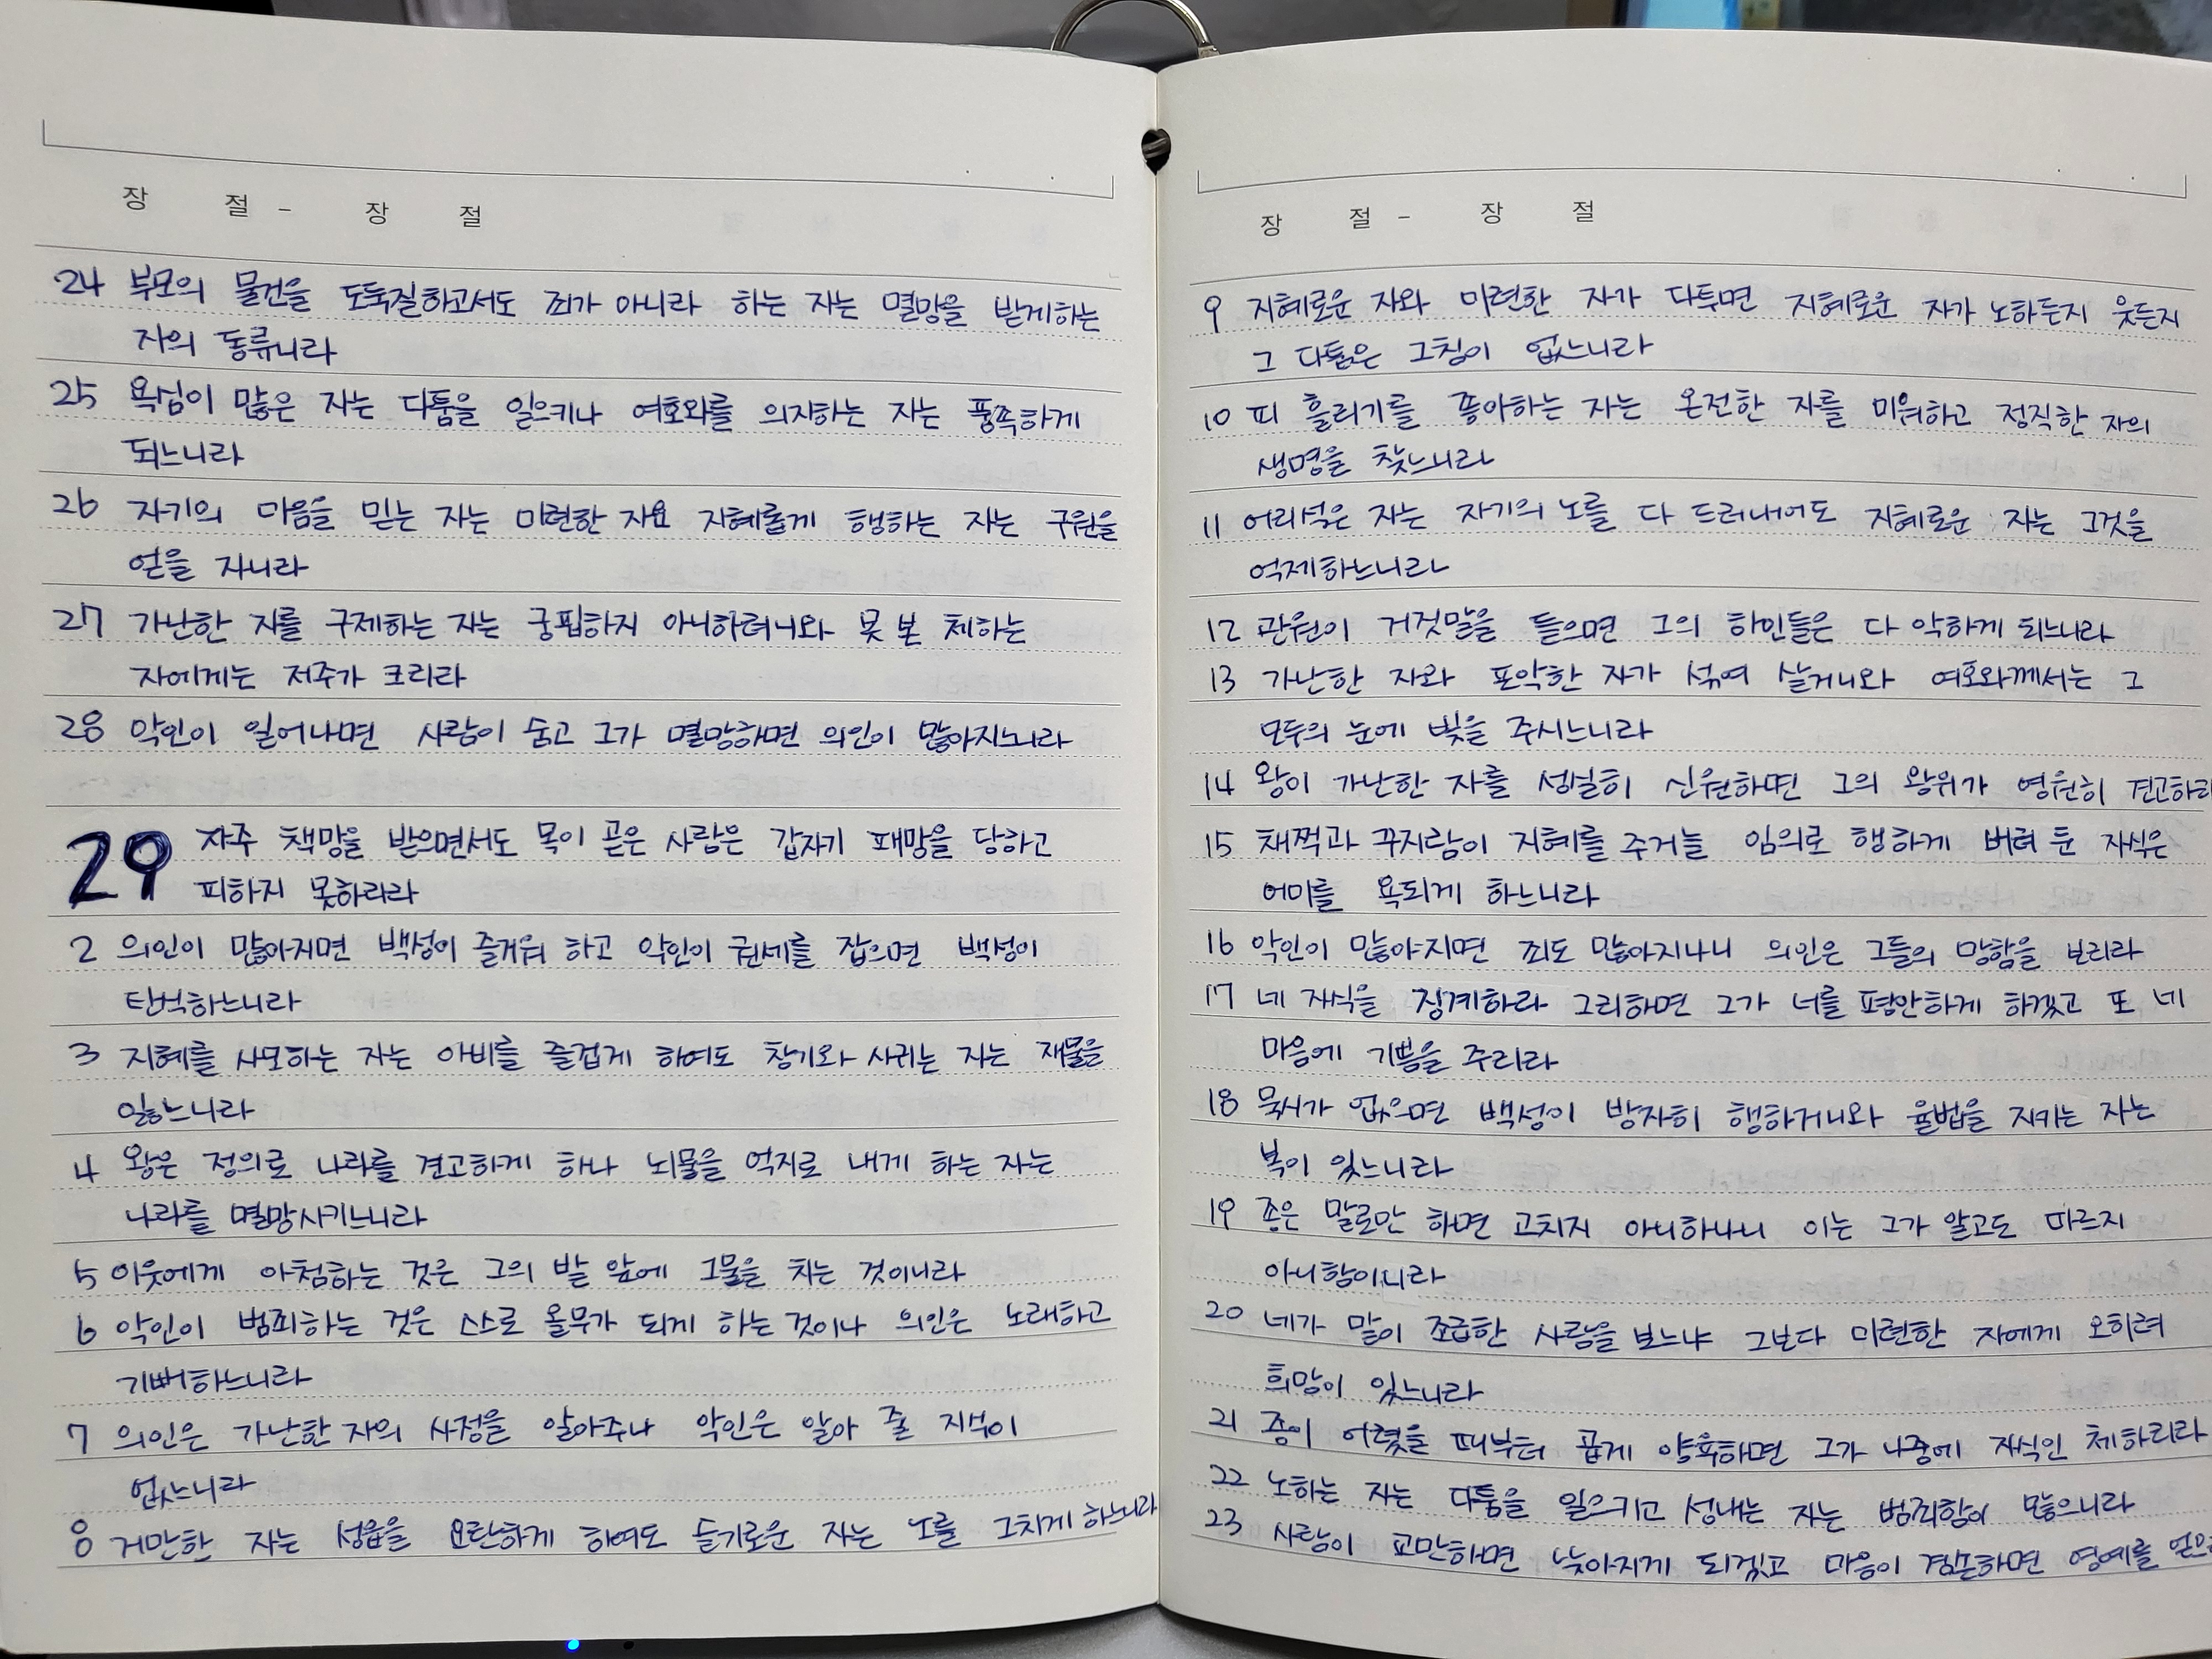 장 절 - 장 절
24 부모의 물건을 도둑질하고서도 죄가 아니라 하는 자는 멸망을 받게하는
자의 동류니라
25 욕심이 많은 자는 다툼을 일으키나 여호와를 의지하는 자는 풍족하게
되느니라
26 자기의 마음을 믿는 자는 미련한 자요 지혜롭게 행하는 자는 구원을
얻을 자니라
27 가난한 자를 구제하는 자는 궁핍하지 아니하려니와 못 본 체하는
자에게는 저주가 크리라
28 악인이 일어나면 사람이 숨고 그가 멸망하면 의인이 많아지느니라
29 자주 책망을 받으면서도 목이 곧은 사람은 갑자기 패망을 당하고
피하지 못하리라
2 의인이 많아지면 백성이 즐거워 하고 악인이 권세를 잡으면 백성이
탄식하느니라
3 지혜를 사모하는 자는 아비를 즐겁게 하여도 창기와 사귀는 자는 재물을
잃느니라
4 왕은 정의로 나라를 견고하게 하나 뇌물을 억지로 내게 하는 자는
나라를 멸망시키느니라
5 이웃에게 아첨하는 것은 그의 발 앞에 그물을 치는 것이니라
6 악인이 범죄하는 것은 스스로 올무가 되게 하는 것이나 의인은 노래하고
기뻐하느니라
7 의인은 가난한 자의 사정을 알아주나 악인은 알아 줄 지식이
없느니라
8 거만한 자는 성읍을 요란하게 하여도 슬기로운 자는 노를 그치게 하느니라
장 절 - 장 절
9 지혜로운 자와 미련한 자가 다투면 지혜로운 자가 노하든지 웃든지
그 다툼은 그침이 없느니라
10 피 흘리기를 좋아하는 자는 온전한 자를 미워하고 정직한 자의
생명을 찾느니라
11 어리석은 자는 자기의 노를 다 드러내어도 지혜로운 자는 그것을
억제하느니라
12 관원이 거짓말을 들으면 그의 하인들은 다 악하게 되느니라
13 가난한 자와 포악한 자가 섞여 살거니와 여호와께서는 그
모두의 눈에 빛을 주시느니라
14 왕이 가난한 자를 성실히 신원하면 그의 왕위가 영원히
15 채찍과 꾸지람이 지혜를 주거늘 임의로 행하게 버려 둔 자식은
어미를 욕되게 하느니라
16 악인이 많아지면 죄도 많아지나니 의인은 그들의 망함을 보리라
17 네 자식을 징계하라 그리하면 그가 너를 평안하게 하겠고 또 네
마음에 기쁨을 주리라
18 묵시가 없으면 백성이 방자히 행하거니와 율법을 지키는 자는
복이 있느니라
19 종은 말로만 하면 고치지 아니하나니 이는 그가 알고도 따르지
아니함이니라
20 네가 말이 조급한 사람을 보느냐 그보다 미련한 자에게 오히려
희망이 있느니라
21 종이 어렸을 때부터 곱게 양육하면 그가 나중에 자식인 체하리라
22 노하는 자는 다툼을 일으키고 성내는 자는 범죄함이 많으니라
23 사람이 교만하면 낮아지게 되겠고 마음이 겸손하면 영예를